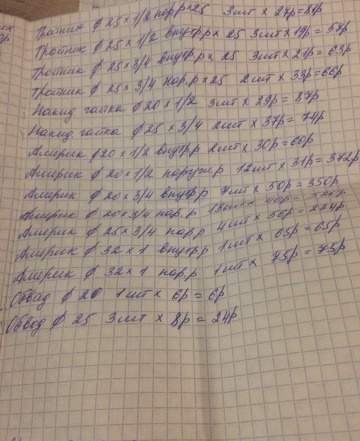 Тройник ф 25 × 1/2 нар р × 25 3шт × 27р = 81р
Тройник ф 25 × 1/2 внутр р × 25 3шт × 19р = 57р
Тройник ф 25 × 3/4 внутр р × 25 3шт × 21р = 63р
Тройник ф 25 × 3/4 нар. р × 25 2шт × 33р = 66р
Накид гайка ф 20 × 1/2 3шт × 29р = 87р
Накид гайка ф 25 × 3/4 2шт × 37р = 74р
Америк ф 20 × 1/2 внутр. р 2шт × 30р = 60р
Америк ф 20 × 1/2 наружн р 12шт × 31р = 372р
Америк ф 20 × 3/4 внутр р 7шт × 50р = 350р
Америк ф 20 × 3/4 нар. р
Америк ф 25 × 3/4 нар. р 4шт × = 224р
Америк ф 32 × 1 внутр. р 1шт × 65р = 65р
Америк ф 32 × 1 нар. р 1шт × 75р = 75р
Обвод ф 20 1шт × 6р = 6р
Обвод ф 25 3шт × 8р = 24р